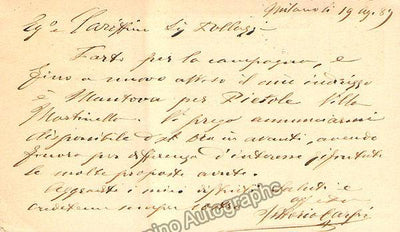 Milano li 19 ag. 89
Eg.o e Car.ssimo Sig.
Parto per la campagna, e
fino a nuovo avviso il mio indirizzo
è Mantova per Pietole Villa
Martinella. Vi prego annunciarmi
disponibile d'ora in avanti, avendo
finora per differenza d'interesse rifiutate
le molte proposte avute.
Aggradite i miei distinti saluti e
credetemi sempre
Vittorio Carpi
ino Autographs